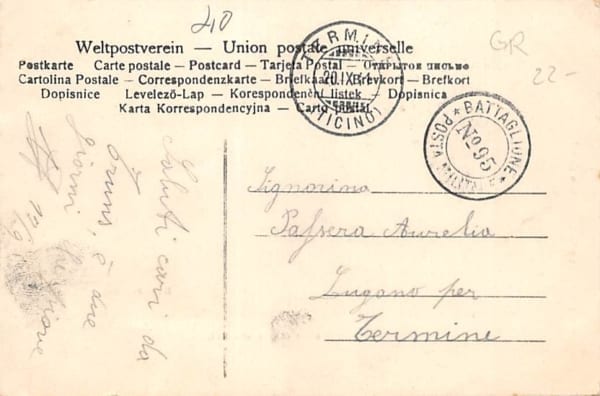 40
GR
22-
Weltpostverein — Union postale universelle
Postkarte Carte postale — Postcard — Tarjeta Postal — Открытое письмо
Cartolina Postale — Correspondenzkarte — Briefkaart — Brevkort — Brefkort
Dopisnice Levelező-Lap — Korespondenční listek — Dopisnica
Karta Korrespondencyjna — Carta postal
TERMINE
20.IX
(TICINO)
BATTAGLIONE
No 95
POSTA MILITARE
Signorina
Passera Aurelia
Lugano per
Termine
Saluti cari da
è due
giorni che piove